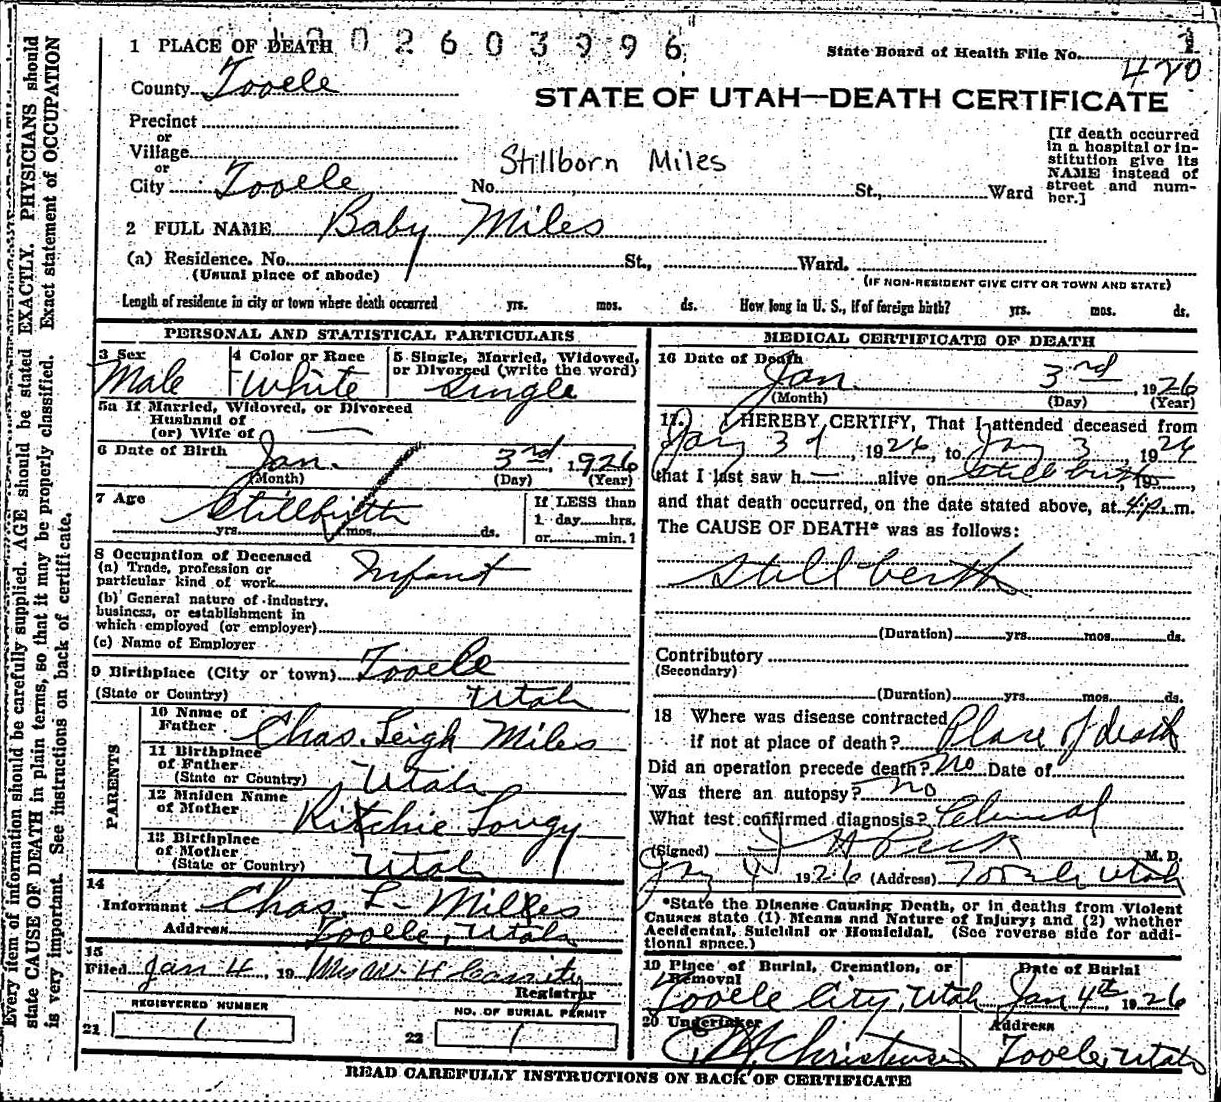 1002603996
1 PLACE OF DEATH
State Board of Health File No. 420
County Tooele
STATE OF UTAH—DEATH CERTIFICATE
Precinct
or
Village
or
City Tooele
Stillborn Miles
No. St., Ward
[If death occurred
in a hospital or in-
stitution give its
NAME instead of
street and num-
ber.]
2 FULL NAME Baby Miles
(a) Residence. No. St., Ward.
(Usual place of abode)
(IF NON-RESIDENT GIVE CITY OR TOWN AND STATE)
Length of residence in city or town where death occurred yrs. mos. ds. How long in U. S., if of foreign birth? yrs. mos. ds.
PERSONAL AND STATISTICAL PARTICULARS
3 Sex
Male
4 Color or Race
White
5 Single, Married, Widowed,
or Divorced (write the word)
Single
5a If Married, Widowed, or Divorced
Husband of
(or) Wife of —
6 Date of Birth
Jan. 3rd, 1926
(Month) (Day) (Year)
7 Age
Stillbirth
yrs. mos. ds.
If LESS than
1 day hrs.
or min.?
8 Occupation of Deceased
(a) Trade, profession or
particular kind of work Infant
(b) General nature of industry,
business, or establishment in
which employed (or employer)
(c) Name of Employer
9 Birthplace (City or town) Tooele
(State or Country) Utah
PARENTS
10 Name of
Father Chas. Leigh Miles
11 Birthplace
of Father
(State or Country) Utah
12 Maiden Name
of Mother Ritchie
13 Birthplace
of Mother
(State or Country) Utah
14
Informant Chas. L. Miles
Address Tooele, Utah
15
Filed Jan 4, 19 Mrs H Cassity
Registrar
REGISTERED NUMBER
21 1
NO. OF BURIAL PERMIT
22 1
MEDICAL CERTIFICATE OF DEATH
16 Date of Death
Jan. 3rd, 1926
(Month) (Day) (Year)
17. I HEREBY CERTIFY, That I attended deceased from
Jany 3, 1926, to Jany 3, 1926
that I last saw h — alive on Stillbirth, 19
and that death occurred, on the date stated above, at 4 p. m.
The CAUSE OF DEATH* was as follows:
Stillberth
(Duration) yrs. mos. ds.
Contributory
(Secondary)
(Duration) yrs. mos. ds.
18 Where was disease contracted
if not at place of death? Place of death
Did an operation precede death? No Date of
Was there an autopsy? No
What test confirmed diagnosis? Clinical
(Signed) J H Peck M. D.
Jany 4 1926 (Address) Tooele, Utah
*State the Disease Causing Death, or in deaths from Violent
Causes state (1) Means and Nature of Injury; and (2) whether
Accidental, Suicidal or Homicidal. (See reverse side for addi-
tional space.)
19 Place of Burial, Cremation, or
Removal
Tooele City, Utah
Date of Burial
Jan 4th, 1926
20 Undertaker
Christensen
Address
Tooele, Utah
READ CAREFULLY INSTRUCTIONS ON BACK OF CERTIFICATE
Every item of information should be carefully supplied. AGE should be stated EXACTLY. PHYSICIANS should
state CAUSE OF DEATH in plain terms, so that it may be properly classified. Exact statement of OCCUPATION
is very important. See instructions on back of certificate.